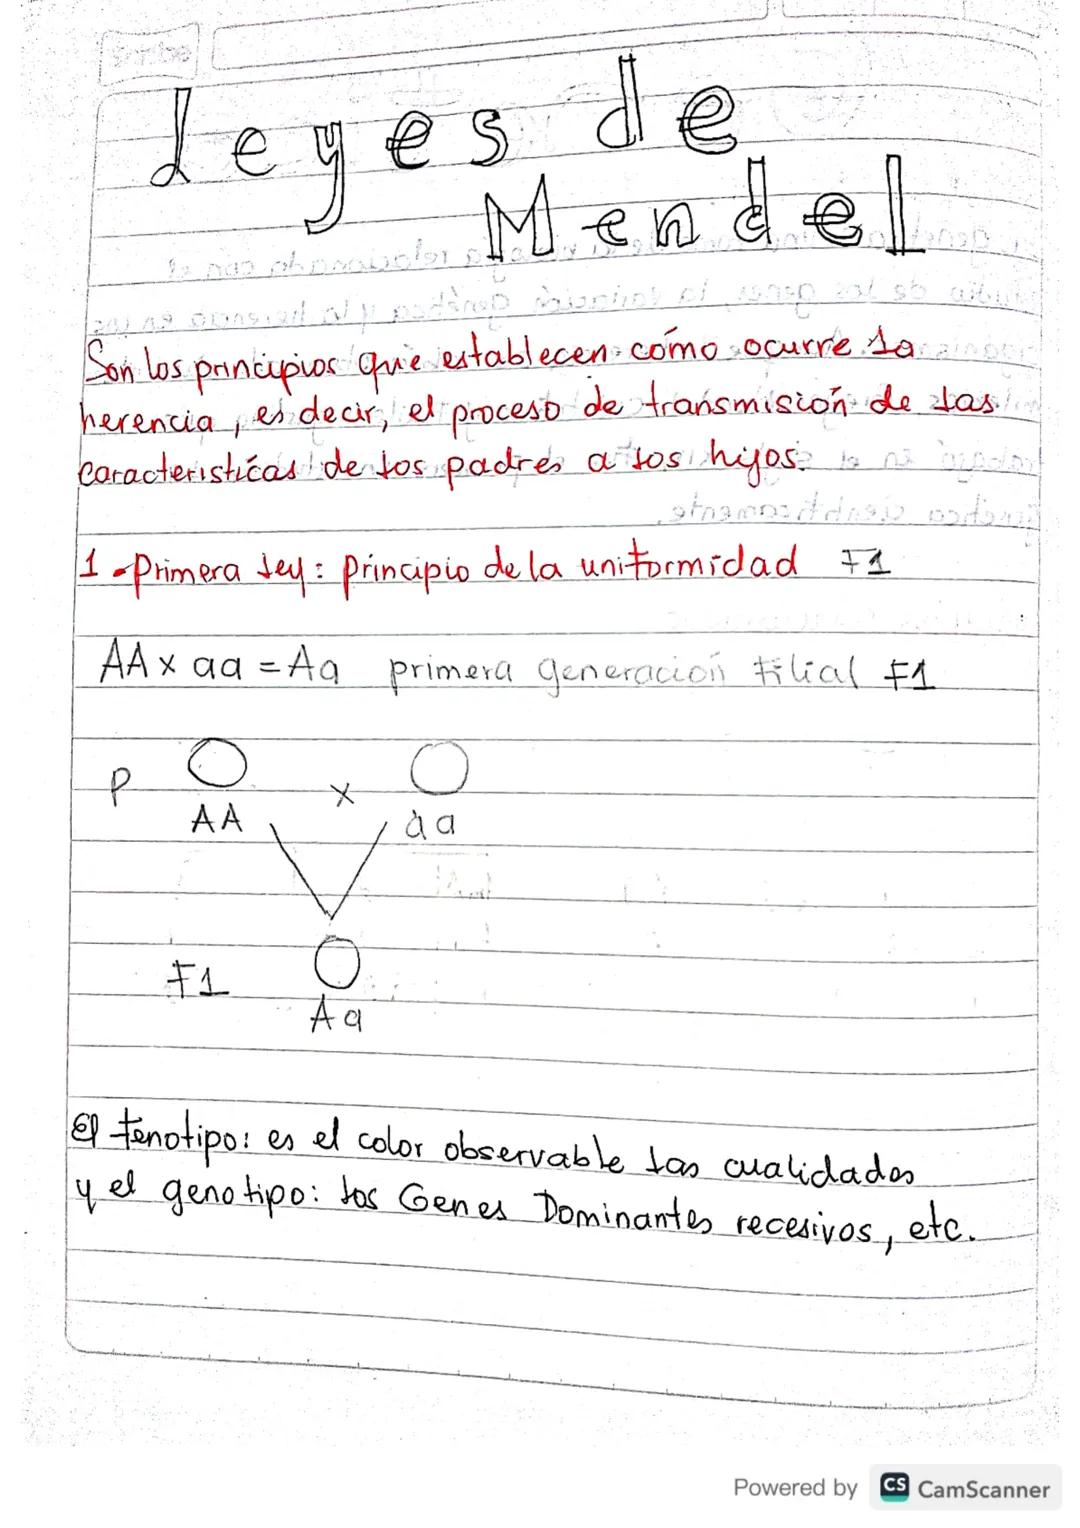 Leyes de
Mendel
Son los principios que establecen cómo ocurre la
herencia, es decir, el proceso de transmisión de las
caracteristícas de los padres a los hijos.
1.-Primera ley: principio de la uniformidad F1
AA x aa = Aa primera generación filial F1
P x
AA aa
F1
Aa
El fenotipo: es el color observable las cualidades
y el genotipo: los Genes Dominantes recesivos, etc.
Powered by CS CamScanner